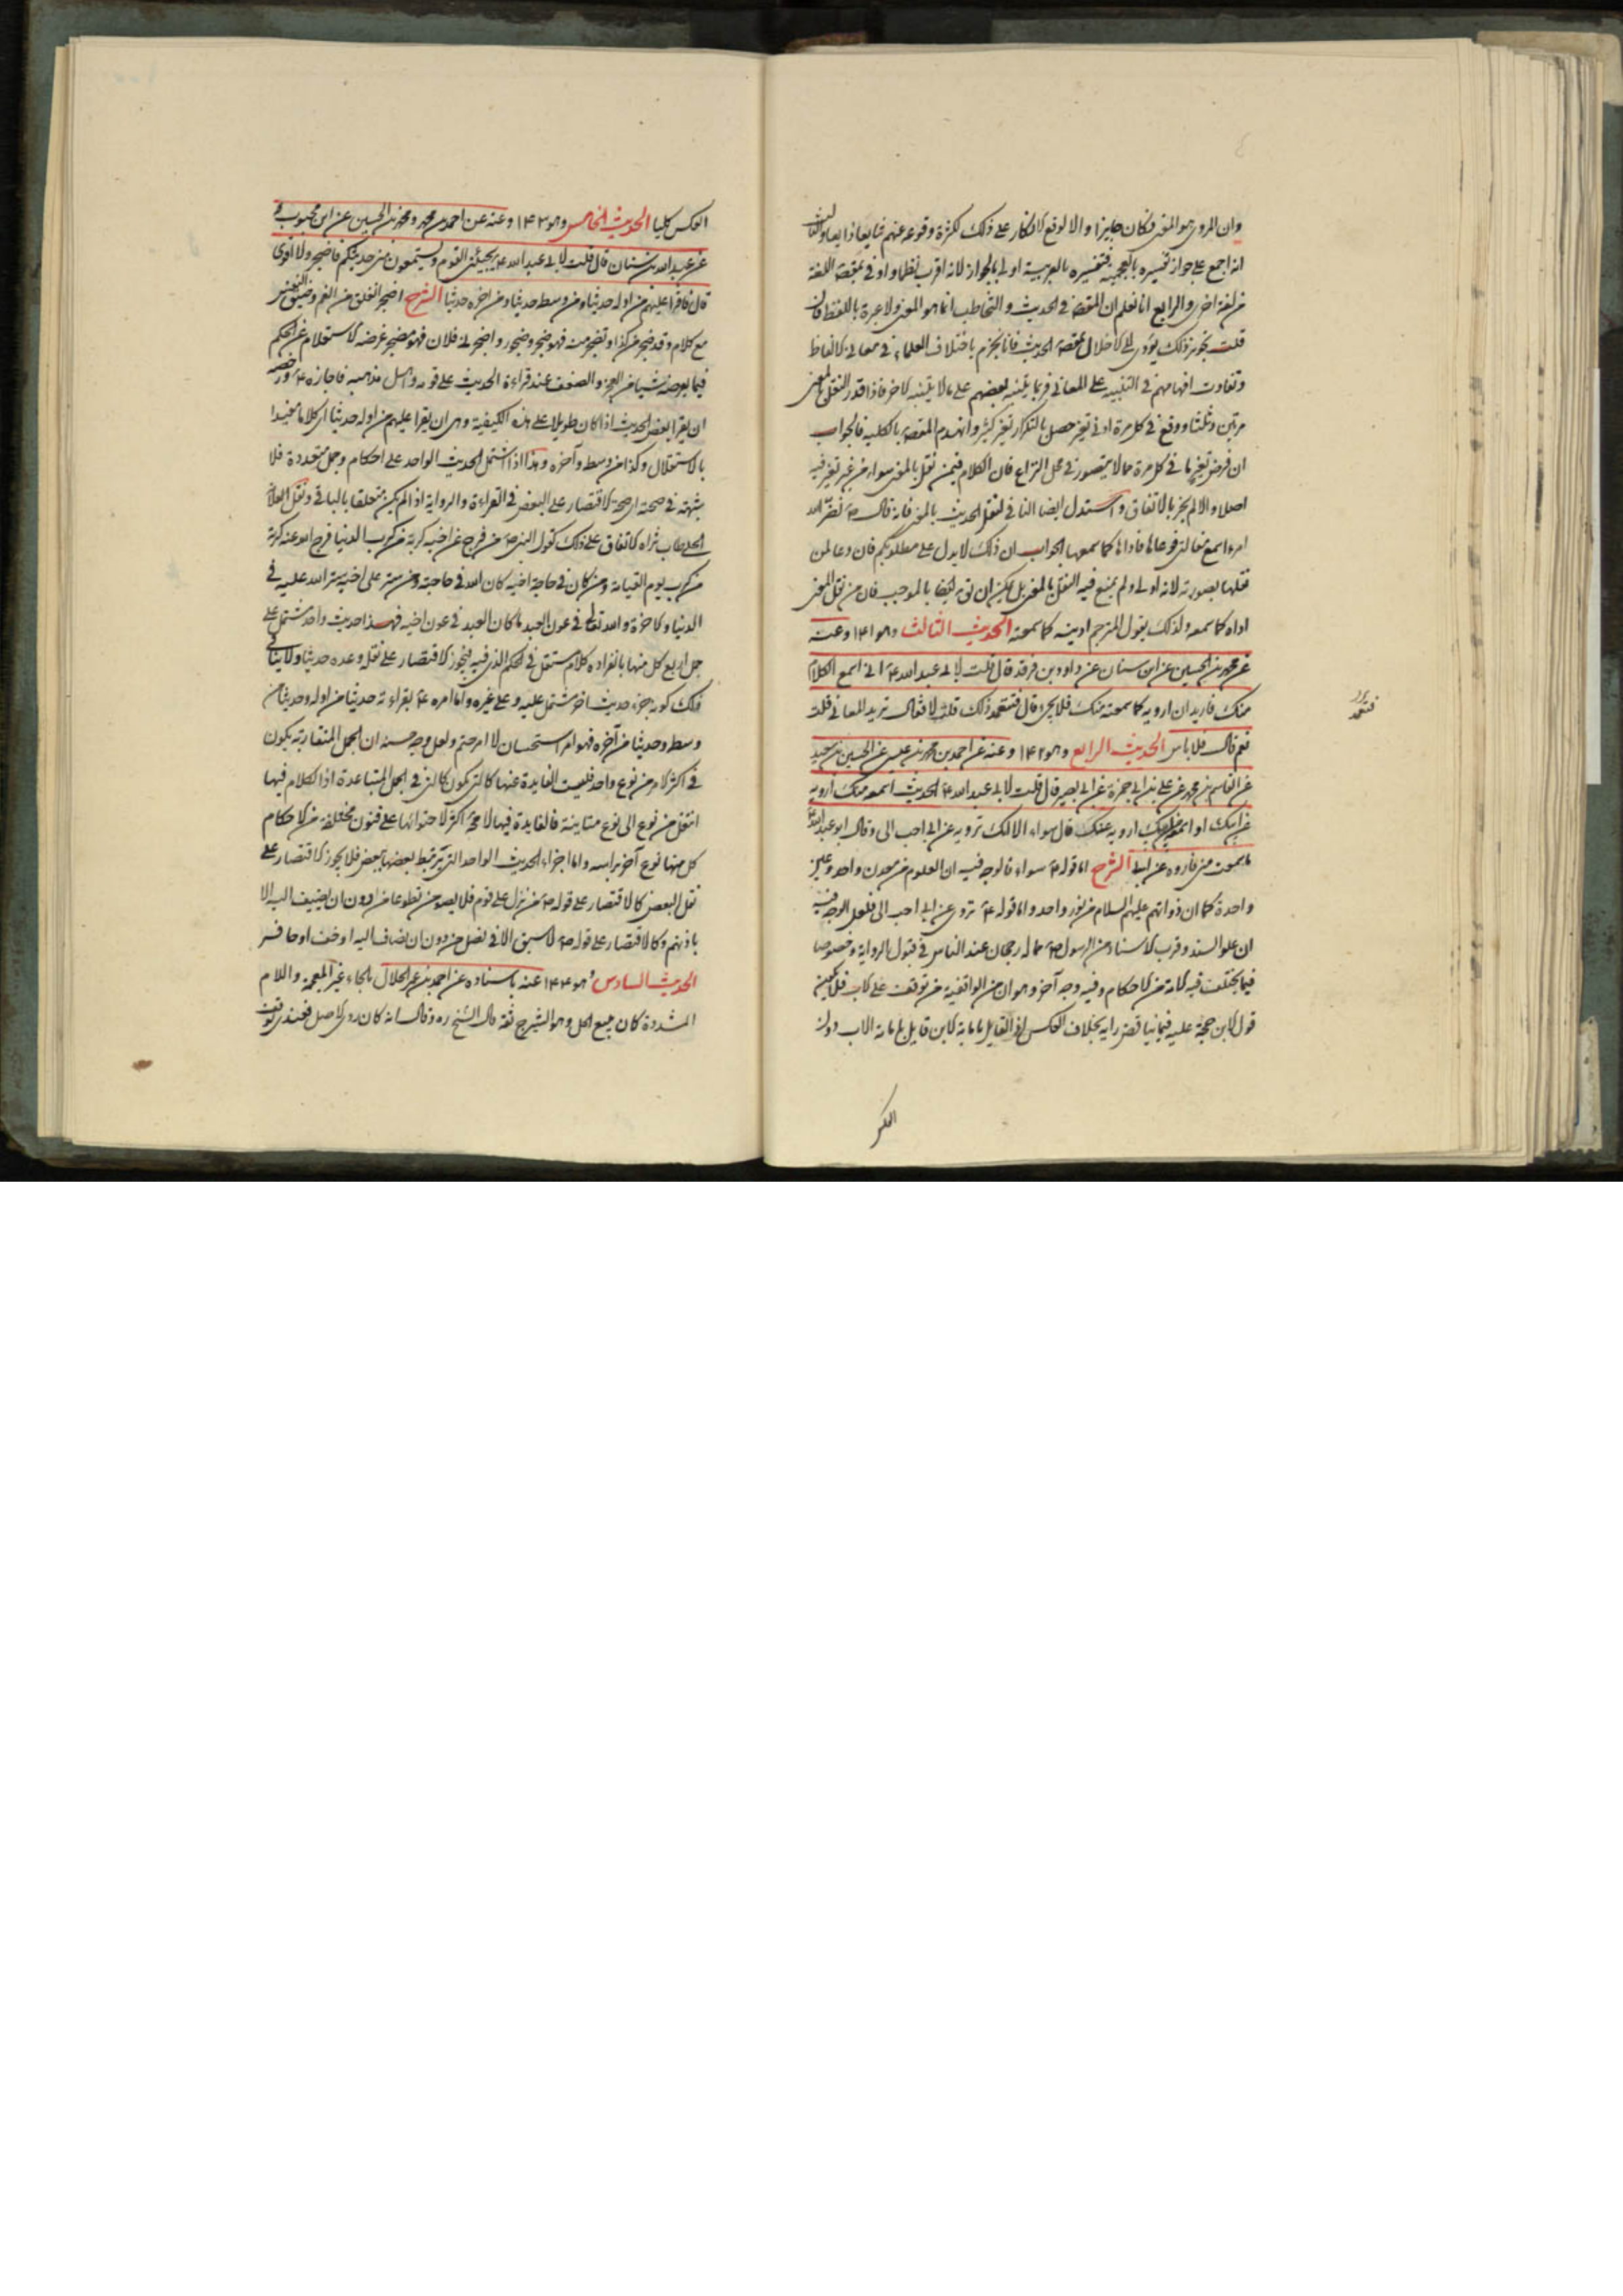 وان المروى هو المعنى فكان جايزا والا لوقع الانكار على ذلك لكثرة وقوعه عنهم فيما بعد الثالث
انه اجمع على جواز تفسيره بالعجمية فتفسيره بالعربية اولى بالجواز لانه اقرب نظما واوفى بمقصود اللغة
من لغة اخرى والرابع انا نعلم ان المقصود في الحديث والتخاطب انما هو المعنى ولا عبرة باللفظ فان
قلت تجويز ذلك يؤدى الى الاخلال بمقصود الحديث فانا نجزم باختلاف العلماء في معانى الالفاظ
وتفاوت افهامهم في التنبيه على المعانى فربما يتنبه بعضهم على ما لا يتنبه الاخر فاذا قدر النقل بالمعنى
مرتين وثلثا ووقع في كل مرة ادنى تغير حصل بالتكرار تغير كثير وانهدم المقصود بالكلية فالجواب
ان فرض تغير ما في كل مرة مما لا يتصور في محل النزاع فان الكلام فيمن نقل بالمعنى سواء من غير تغير فيه
اصلا والا لم يجز بالاتفاق واستدل ايضا النافى لنقل الحديث بالمعنى فانه قال ص نضر الله
امرءا سمع مقالتى فوعاها فاداها كما سمعها الجواب ان ذلك لا يدل على مطلوبكم فان دعا لمن
نقلها بصورته لانه اولى ولم يمنع فيه النقل بالمعنى بل يمكن ان يق ايضا بالموجب فان من نقل المعنى
اداه كما سمعه ولذلك يقول المترجم اديته كما سمعته الحديث الثالث وهو ١٤١ وعنه
عن محمد بن الحسين عن ابن سنان عن داود بن فرقد قال قلت لابى عبد الله ع انى اسمع الكلام
منك فاريد ان ارويه كما سمعته منك فلا يجئ قال فتتعمد ذلك قلت لا فقال تريد المعانى قلت
نعم قال فلا باس الحديث الرابع وهو ١٤٢ وعنه عن احمد بن محمد بن عيسى عن الحسين بن سعيد
عن القاسم بن محمد عن على بن ابى حمزة عن ابى بصير قال قلت لابى عبد الله ع الحديث اسمعه منك ارويه
عن ابيك او اسمعه من ابيك ارويه عنك قال سواء الا انك ترويه عن ابى احب الى وقال ابو عبد الله
ما سمعت منى فاروه عن ابى الشرح اما قوله ع سواء فالوجه فيه ان العلوم من معدن واحد وعين
واحدة كما ان ذواتهم عليهم السلام من نور واحد واما قوله ع تروى عن ابى احب الى فلعل الوجه فيه
ان علو السند وقرب الاسناد من الرسول ص مما له رجحان عند الناس في قبول الرواية وخصوصا
فيما يختلف فيه الامة من الاحكام وفيه وجه آخر وهو ان من الواقفية من توقف على الاب فلا يكون
قول الابن حجة عليه فيما يناقض رايه بخلاف العكس اذ القايل بامامة الابن قايل بامامة الاب دون
العكس
فتتعمد
العكس كليا الحديث الخامس وهو ١٤٣ وعنه عن احمد بن محمد ومحمد بن الحسين عن ابن محبوب
عن عبد الله بن سنان قال قلت لابى عبد الله ع يجيئنى القوم فيستمعون منى حديثكم فاضجر ولا اقوى
قال فاقرا عليهم من اوله حديثا ومن وسطه حديثا ومن آخره حديثا الشرح الضجر القلق من الغم وضيق النفس
مع كلام وقد ضجر من كذا وتضجر منه فهو ضجر وضجور واضجر لى فلان فهو مضجر غرضه الاستعلام عن الحكم
فيما يعرضه شيئا من العجز والضعف عند قراءة الحديث على قومه واهل مذهبه فاجازه ع ورخصه
ان يقرا بعض الحديث اذا كان طويلا على هذه الكيفية وهى ان يقرا عليهم من اوله حديثا اى كلاما مفيدا
بالاستقلال وكذا من وسطه وآخره وهذا اذا اشتمل الحديث الواحد على احكام وجمل متعددة فلا
شبهة في صحته اى صحة الاقتصار على البعض في القراءة والرواية اذا لم يكن متعلقا بالباقى ونقل العلامة
الحلى طاب ثراه الاتفاق على ذلك كقول النبى ص من فرج عن اخيه كربة من كرب الدنيا فرج الله عنه كربة
من كرب يوم القيامة ومن كان في حاجة اخيه كان الله في حاجته ومن ستر على اخيه ستر الله عليه في
الدنيا والاخرة والله تعالى في عون العبد ما كان العبد في عون اخيه فهذا حديث واحد مشتمل على
جمل اربع كل منها بانفراده كلام مستقل في الحكم الذى فيه فيجوز الاقتصار على نقله وعده حديثا ولا ينافى
ذلك كونه جزء حديث آخر مشتمل عليه وعلى غيره واما امره ع بقراءة حديثا من اوله وحديثا من
وسطه وحديثا من آخره فهو امر استحسان لا امر حتم ولعل وجه حسنه ان الجمل المتقاربة يكون
في اكثر الامر من نوع واحد فليست الفايدة عنها كالتى يكون كالتى في الجمل المتباعدة اذا الكلام فيها
انتقل من نوع الى نوع متباينة فالفايدة فيها لا مح اكثر لاحتوائها على فنون مختلفة من الاحكام
كل منها نوع آخر براسه واما اجزاء الحديث الواحد التى يرتبط بعضها ببعض فلا يجوز الاقتصار على
نقل البعض كالاقتصار على قوله ص من نزل على قوم فلا يصومن تطوعا من دون ان يضيف اليه الا
باذنهم وكالاقتصار على قوله ص لا سبق الا في نصل من دون ان يضاف اليه او خف او حافر
الحديث السادس وهو ١٤٤ عنه باسناده عن احمد بن عمر الحلال بالحاء غير المعجمة واللام
المشددة كان يبيع الحل وهو الشيرج ثقة قال الشيخ ره وقال انه كان ردى الاصل فعندى توقف